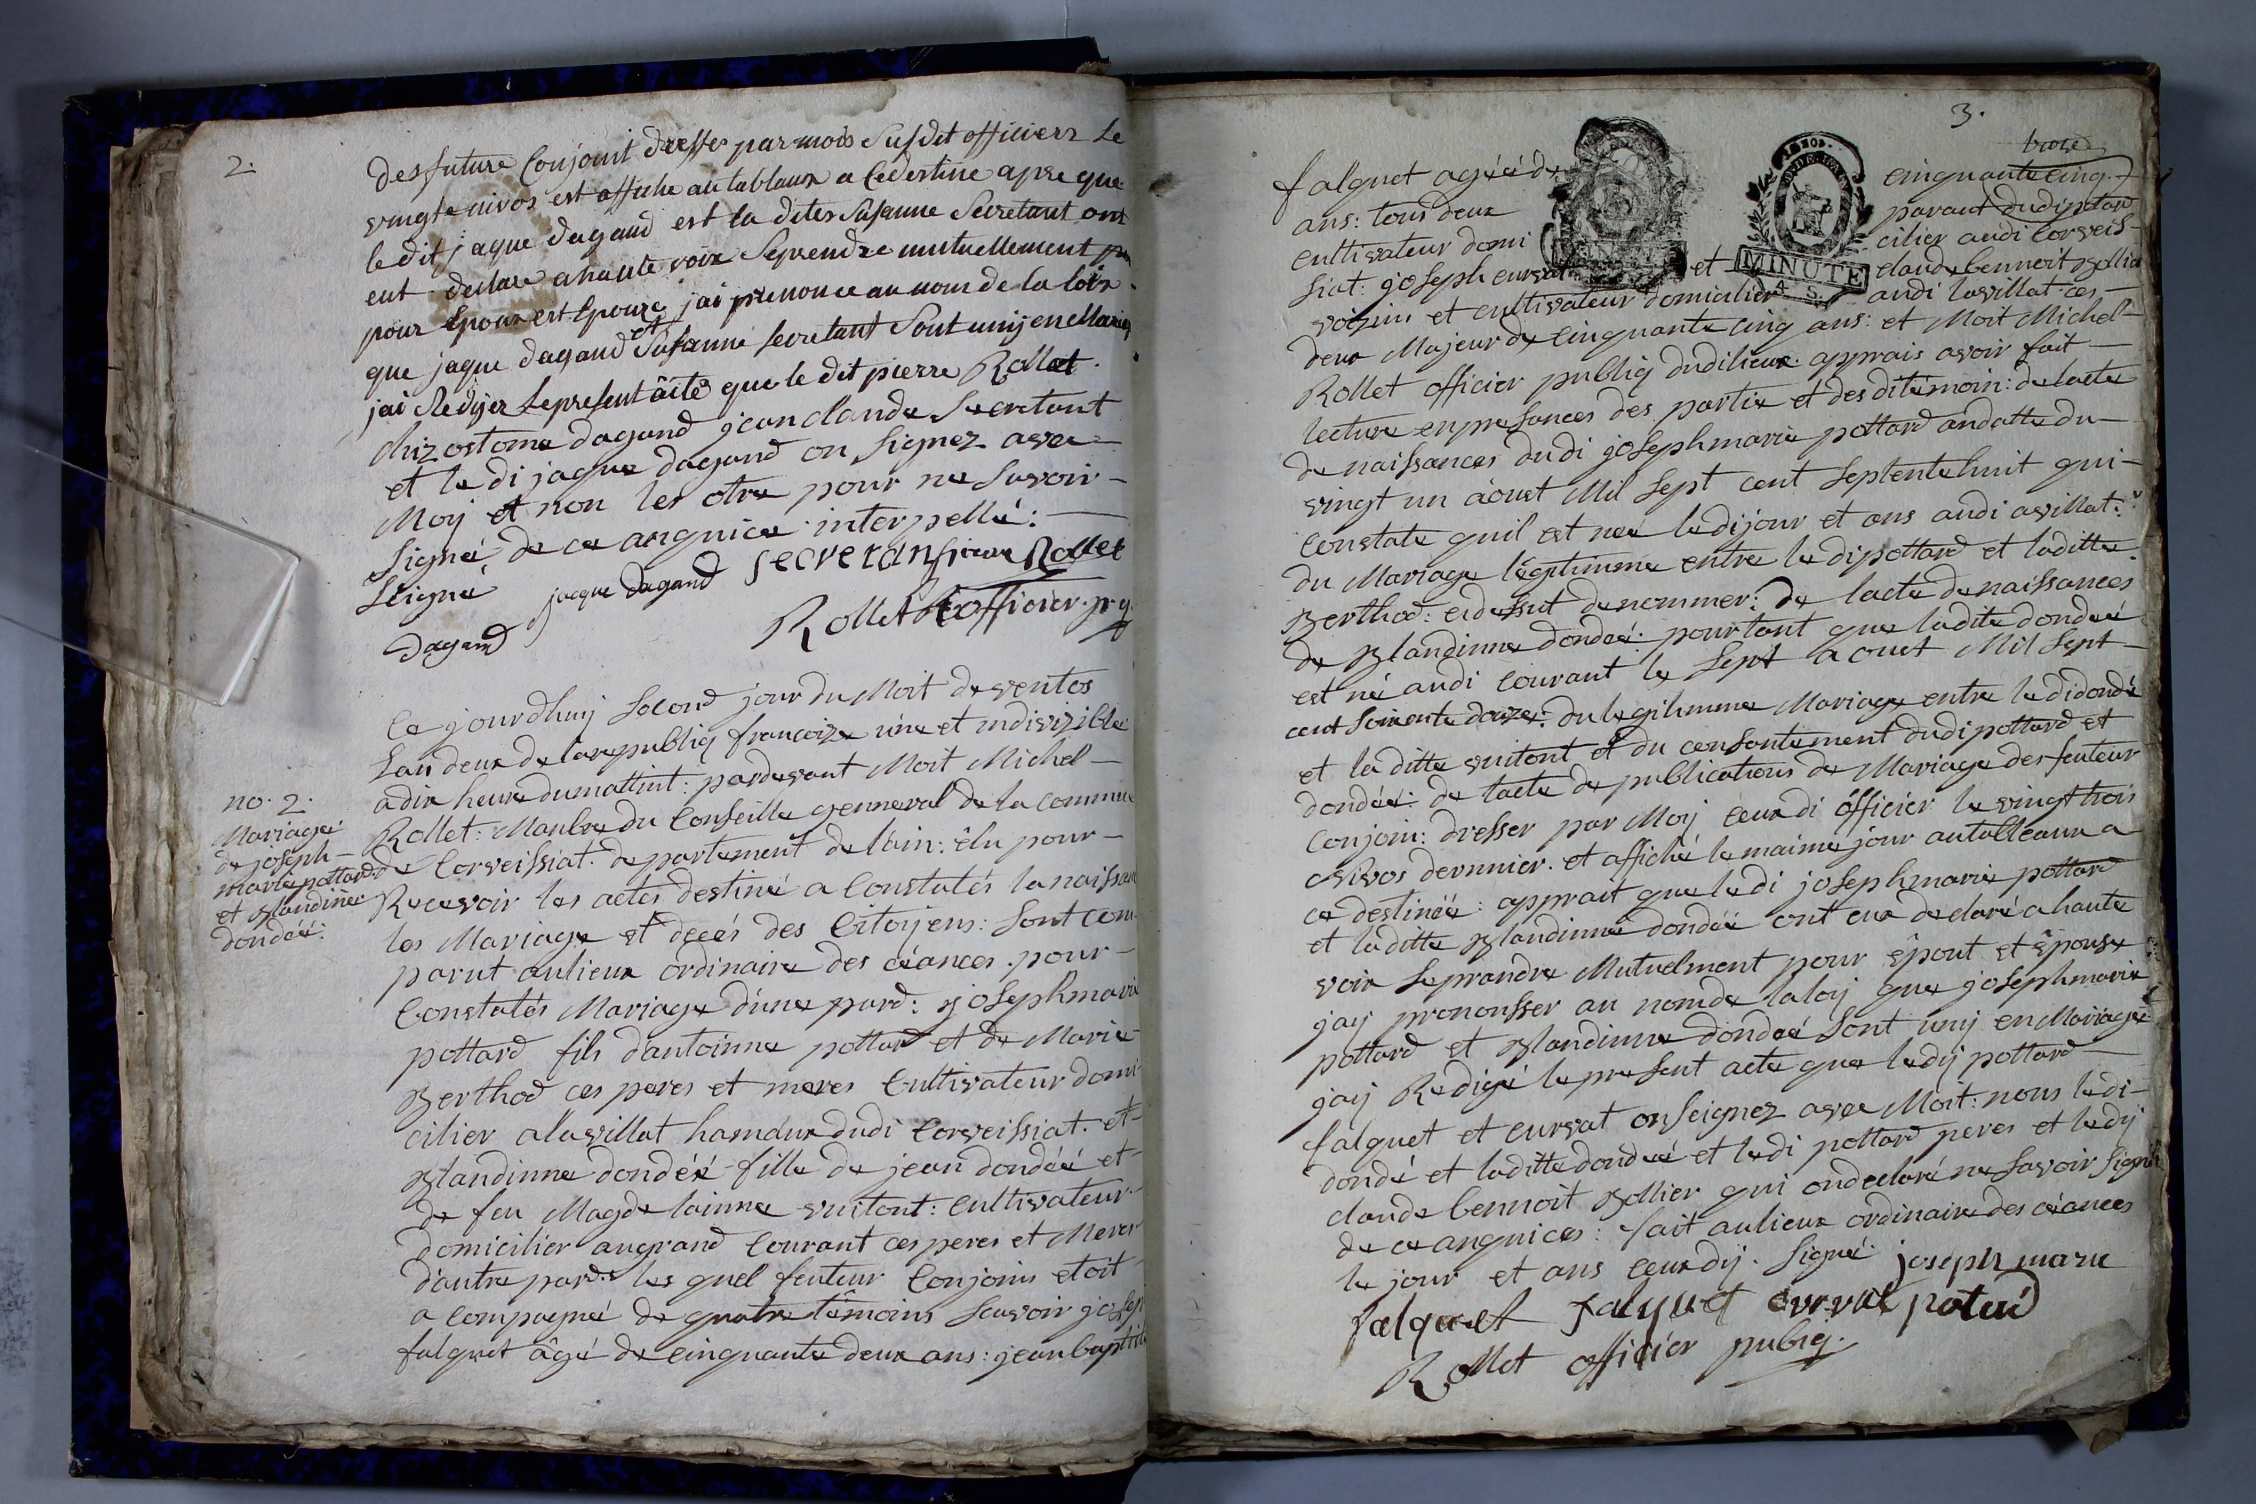 2.
des future Conjouit dresser par mois Susdit officierz Le
vingte nivos est affiche au tablaux a Ce destine apre que
le dit jaque dagand est la dites Susanne Secretant ont
eut declare a haute voix Se prendre mutuellement
pour Epoux est Epouze jai prenonce au nom de la loix
que jaque dagand et Susanne Secretant Sont unij en Mariage
jai Redyer Le present acite que le dit pierre Rollet
chizostome dagand jean claude Secretant
et le di jaque dagand on Signez avec
Moij et non les otre pour ne Savoir
Signé de ce anquice interpellé:
Seigné
jacque dagand Secretan pierre Rollet
dagand
Rollet officier
Ce jourdhuij Second jour du Moit de ventos
Lan deux de la republiq francoize une et indivizible
a dix heure du mattint: par devant Moit Michel
no. 2.
Mariage
de joseph
marie pottard
et Blandine
dondéé:
Rollet: Manbre du Conseille genneral de la commune
de Corveissiat. departement de lain: élu pour
Recevoir les actes destiné a Constatés la naissance
les Mariage et decés des Citoijens: Sont com
parut au lieux ordinaire des céances pour
Constatés Mariage d'une pard: joseph marie
pottard fils dantoinne pottard et de Marie
Berthod ces peres et meres Cultivateur domi
cilier a la villat hamdux dudi Corveissiat. et
Blandinne dondéé fille de jean dondéé et
de feu Magdelainne vuitont: Cultivateur
domicilier au grand Courant ces peres et Meres
d'autre pard: les quel feuteur Conjoins etoit
a compagneé de quatre témoins Scavoir joseph
falquet âgé de cinquante deux ans: jean baptiste
3.
troise
falquet ageé de cinquante cinq
ans: tous deux parant dudi potard
cultivateur domi cilier audi Corveis
siat: joseph curvat et claude bennoit Bollier
voizin et cultivateur domicilier audi lavillat ces
deux Majeur de cinquante cinq ans: et Moit Michel
Rollet officier publiq dudi lieux. apprais avoir fait
lecture en presances des partie et des di témoin: de lacte
de naissances dudi joseph marie pottard an datte du
vingt un àouet Mil Sept cent Septente huit qui
constate quil est neé le di jour et ans audi avillat:
du Mariage légitimme entre le di pottard et la ditte
Berthod: ci dessut denommer: de lacte de naissances
de Blandinne dondeé: pourtant que la dite dondeé
est né audi Courant le Sept aouet Mil Sept
cent Soixente douze: du legihmme Mariage entre le di dondé
et la ditte vuitont et du consentement dudi pottard et
dondéé: de lacte de publications de Mariage des feuteur
Conjoin: dresser par Moij ceux di officier le vingt trois
nivos dernnier. et affiché le maime jour au tableaux a
ce destinéé: apprait que le di joseph marie pottard
et la ditte Blandinne dondéé ont eux declaré a haute
voix Se prandre Mutuelment pour épout et épouse
jaij prononsser au nom de la loij que joseph marie
pottard et Blandinne dondeé Sont unij en Mariage
jaij Redigé le present acte que le dij pottard
falquet et curvat on Seignez avec Moit: nons le di
dondé et la ditte dondeé et le di pottard peres et le dij
claude bennoit Bollier qui on declaré ne Savoir Signé
de ce anquices: fait au lieux ordinaire des céances
le jour et ans ceux dij. Signé: joseph marie
falquet falquet curval potard
Rollet officier publiq.
MINUTE